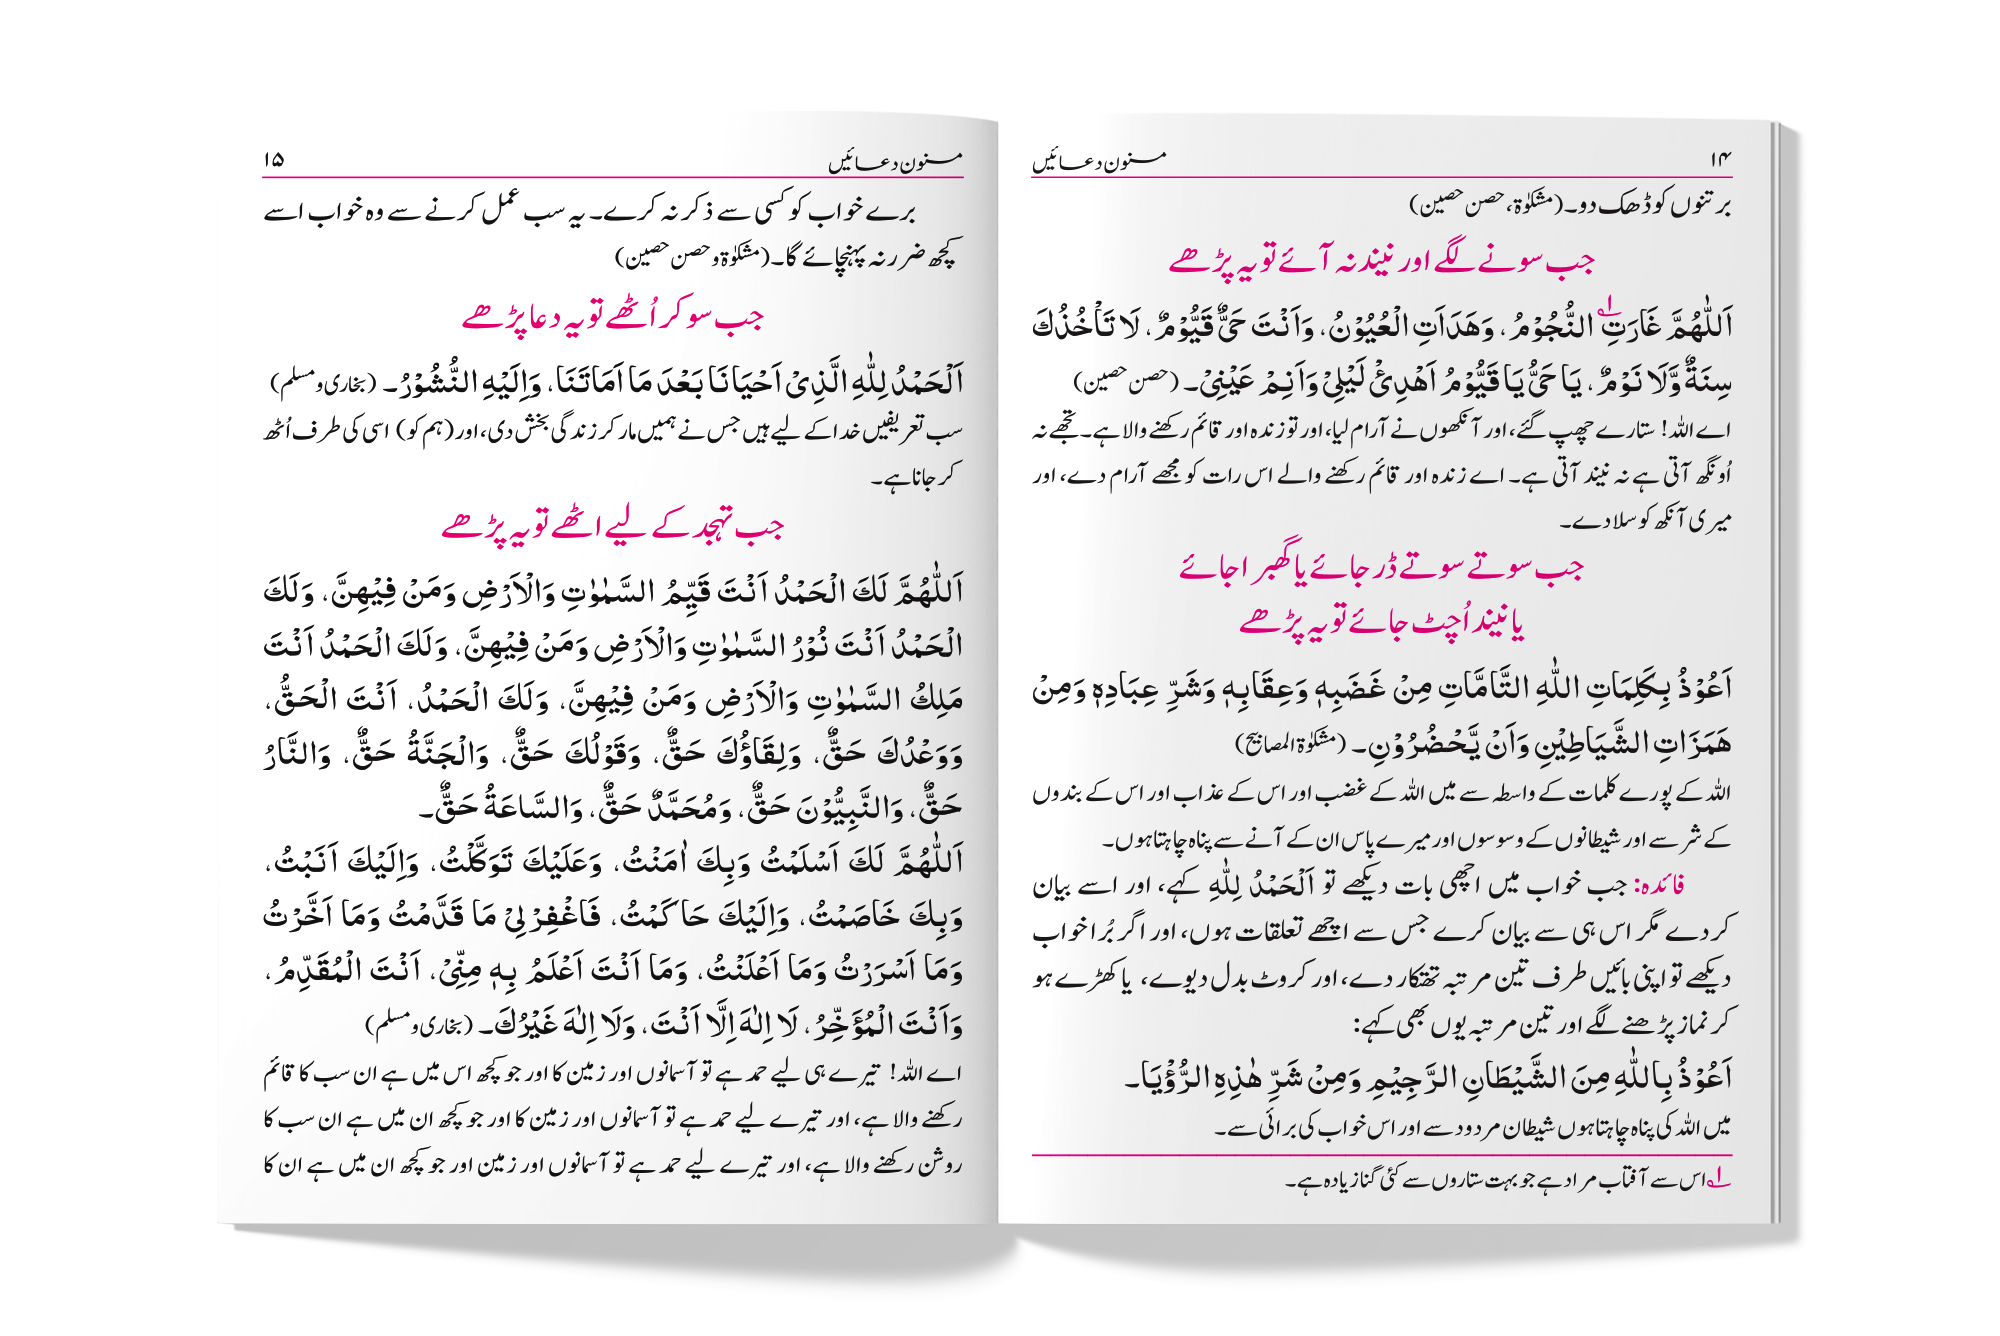 ۱۴ مسنون دعائیں
برتنوں کو ڈھک دو۔ (مشکوٰۃ، حصن حصین)
جب سونے لگے اور نیند نہ آئے تو یہ پڑھے
اَللّٰهُمَّ غَارَتِ ۱؎ النُّجُوْمُ، وَهَدَاَتِ الْعُيُوْنُ، وَاَنْتَ حَيٌّ قَيُّوْمٌ، لَا تَأْخُذُكَ
سِنَةٌ وَّلَا نَوْمٌ، يَا حَيُّ يَا قَيُّوْمُ اَهْدِئْ لَيْلِيْ وَاَنِمْ عَيْنِيْ۔ (حصن حصین)
اے اللہ! ستارے چھپ گئے، اور آنکھوں نے آرام لیا، اور تو زندہ اور قائم رکھنے والا ہے۔ تجھے نہ
اُونگھ آتی ہے نہ نیند آتی ہے۔ اے زندہ اور قائم رکھنے والے اس رات کو مجھے آرام دے، اور
میری آنکھ کو سلا دے۔
جب سوتے سوتے ڈر جائے یا گھبرا جائے
یا نیند اُچٹ جائے تو یہ پڑھے
اَعُوْذُ بِكَلِمَاتِ اللّٰهِ التَّامَّاتِ مِنْ غَضَبِهٖ وَعِقَابِهٖ وَشَرِّ عِبَادِهٖ وَمِنْ
هَمَزَاتِ الشَّيَاطِيْنِ وَاَنْ يَّحْضُرُوْنِ۔ (مشکوٰۃ المصابیح)
اللہ کے پورے کلمات کے واسطہ سے میں اللہ کے غضب اور اس کے عذاب اور اس کے بندوں
کے شر سے اور شیطانوں کے وسوسوں اور میرے پاس ان کے آنے سے پناہ چاہتا ہوں۔
فائدہ: جب خواب میں اچھی بات دیکھے تو اَلْحَمْدُ لِلّٰهِ کہے، اور اسے بیان
کر دے مگر اس ہی سے بیان کرے جس سے اچھے تعلقات ہوں، اور اگر بُرا خواب
دیکھے تو اپنی بائیں طرف تین مرتبہ تھتکار دے، اور کروٹ بدل دیوے، یا کھڑے ہو
کر نماز پڑھنے لگے اور تین مرتبہ یوں بھی کہے:
اَعُوْذُ بِاللّٰهِ مِنَ الشَّيْطَانِ الرَّجِيْمِ وَمِنْ شَرِّ هٰذِهِ الرُّؤْيَا۔
میں اللہ کی پناہ چاہتا ہوں شیطان مردود سے اور اس خواب کی برائی سے۔
۱؎ اس سے آفتاب مراد ہے جو بہت ستاروں سے کئی گنا زیادہ ہے۔
مسنون دعائیں ۱۵
برے خواب کو کسی سے ذکر نہ کرے۔ یہ سب عمل کرنے سے وہ خواب اسے
کچھ ضرر نہ پہنچائے گا۔ (مشکوٰۃ و حصن حصین)
جب سو کر اُٹھے تو یہ دعا پڑھے
اَلْحَمْدُ لِلّٰهِ الَّذِيْ اَحْيَانَا بَعْدَ مَا اَمَاتَنَا، وَاِلَيْهِ النُّشُوْرُ۔ (بخاری و مسلم)
سب تعریفیں خدا کے لیے ہیں جس نے ہمیں مار کر زندگی بخش دی، اور (ہم کو) اسی کی طرف اُٹھ
کر جانا ہے۔
جب تہجد کے لیے اٹھے تو یہ پڑھے
اَللّٰهُمَّ لَكَ الْحَمْدُ اَنْتَ قَيِّمُ السَّمٰوٰتِ وَالْاَرْضِ وَمَنْ فِيْهِنَّ، وَلَكَ
الْحَمْدُ اَنْتَ نُوْرُ السَّمٰوٰتِ وَالْاَرْضِ وَمَنْ فِيْهِنَّ، وَلَكَ الْحَمْدُ اَنْتَ
مَلِكُ السَّمٰوٰتِ وَالْاَرْضِ وَمَنْ فِيْهِنَّ، وَلَكَ الْحَمْدُ، اَنْتَ الْحَقُّ،
وَوَعْدُكَ حَقٌّ، وَلِقَاؤُكَ حَقٌّ، وَقَوْلُكَ حَقٌّ، وَالْجَنَّةُ حَقٌّ، وَالنَّارُ
حَقٌّ، وَالنَّبِيُّوْنَ حَقٌّ، وَمُحَمَّدٌ حَقٌّ، وَالسَّاعَةُ حَقٌّ۔
اَللّٰهُمَّ لَكَ اَسْلَمْتُ وَبِكَ اٰمَنْتُ، وَعَلَيْكَ تَوَكَّلْتُ، وَاِلَيْكَ اَنَبْتُ،
وَبِكَ خَاصَمْتُ، وَاِلَيْكَ حَاكَمْتُ، فَاغْفِرْ لِيْ مَا قَدَّمْتُ وَمَا اَخَّرْتُ
وَمَا اَسْرَرْتُ وَمَا اَعْلَنْتُ، وَمَا اَنْتَ اَعْلَمُ بِهٖ مِنِّيْ، اَنْتَ الْمُقَدِّمُ،
وَاَنْتَ الْمُؤَخِّرُ، لَا اِلٰهَ اِلَّا اَنْتَ، وَلَا اِلٰهَ غَيْرُكَ۔ (بخاری و مسلم)
اے اللہ! تیرے ہی لیے حمد ہے تو آسمانوں اور زمین کا اور جو کچھ اس میں ہے ان سب کا قائم
رکھنے والا ہے، اور تیرے لیے حمد ہے تو آسمانوں اور زمین کا اور جو کچھ ان میں ہے ان سب کا
روشن رکھنے والا ہے، اور تیرے لیے حمد ہے تو آسمانوں اور زمین اور جو کچھ ان میں ہے ان کا